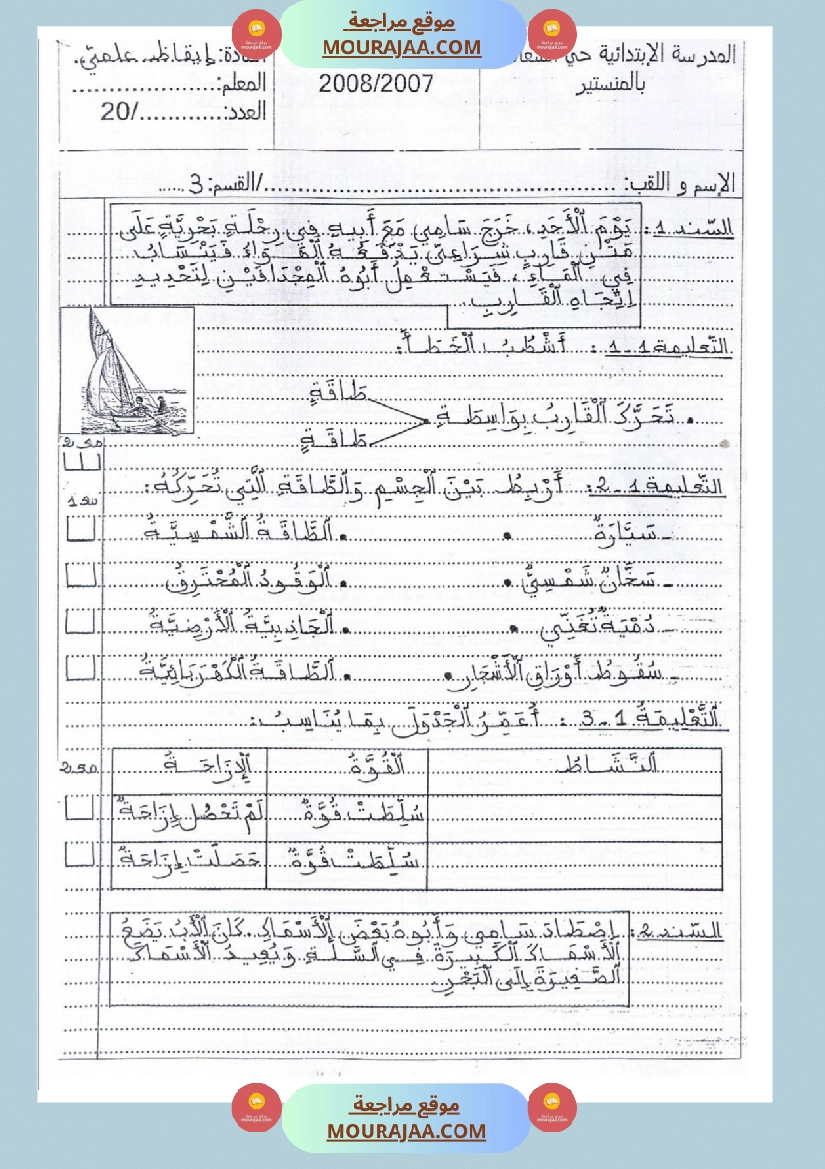 موقع مراجعة
MOURAJAA.COM
المدرسة الإبتدائية حي
بالمنستير
2008/2007
المادة: إيقاظ علمي.
المعلم:....................
العدد:............/20
الإسم و اللقب: ..................................................../القسم: 3......
السّند 1: يَوْمَ ٱلْأَحَدِ، خَرَجَ سَامِي مَعَ أَبِيهِ فِي رِحْلَةٍ بَحْرِيَّةٍ عَلَى
مَتْنِ قَارِبٍ شِرَاعِيٍّ يَدْفَعُهُ ٱلْهَوَاءُ فَيَنْسَابُ
فِي ٱلْمَاءِ، فَيَسْتَعْمِلُ أَبُوهُ ٱلْمِجْدَافَيْنِ لِتَحْدِيدِ
اِتِّجَاهِ ٱلْقَارِبِ.
التّعليمة 1-1: أَشْطُبُ ٱلْخَطَأَ:
طَاقَةٍ
• تَحَرَّكَ ٱلْقَارِبُ بِوَاسِطَةِ
طَاقَةٍ
التّعليمة 1-2: أَرْبِطُ بَيْنَ ٱلْجِسْمِ وَٱلطَّاقَةِ ٱلَّتِي تُحَرِّكُهُ:
- سَيَّارَةٌ • • ٱلطَّاقَةُ ٱلشَّمْسِيَّةُ
- سَخَّانٌ شَمْسِيٌّ • • ٱلْوَقُودُ ٱلْمُحْتَرِقُ
- دُمْيَةٌ تُغَنِّي • • ٱلْجَاذِبِيَّةُ ٱلْأَرْضِيَّةُ
- سُقُوطُ أَوْرَاقِ ٱلْأَشْجَارِ • • ٱلطَّاقَةُ ٱلْكَهْرَبَائِيَّةُ
ٱلتَّعْلِيمَةُ 1-3: أُعَمِّرُ ٱلْجَدْوَلَ بِمَا يُنَاسِبُ:
ٱلنَّشَاطُ ٱلْقُوَّةُ ٱلْإِزَاحَةُ
سُلِّطَتْ قُوَّةٌ لَمْ تَحْصُل إِزَاحَةٌ
سُلِّطَتْ قُوَّةٌ حَصَلَتْ إِزَاحَةٌ
السّند 2: اِصْطَادَ سَامِي وَأَبُوهُ بَعْضَ ٱلْأَسْمَاكِ. كَانَ ٱلْأَبُ يَضَعُ
ٱلْأَسْمَاكَ ٱلْكَبِيرَةَ فِي ٱلسَّلَّةِ وَيُعِيدُ ٱلْأَسْمَاكَ
ٱلصَّغِيرَةَ إِلَى ٱلْبَحْرِ.
موقع مراجعة
MOURAJAA.COM